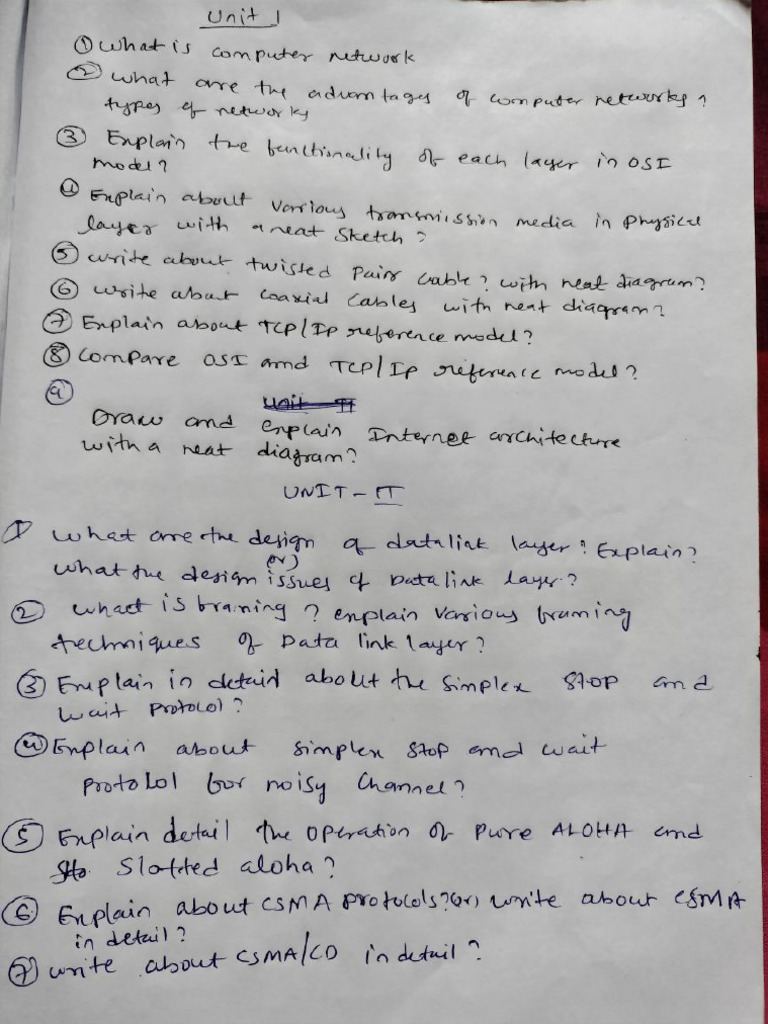 Unit 1
① What is computer network
② What are the advantages of computer networks?
types of networks
③ Explain the functionality of each layer in OSI
model?
④ Explain about various transmission media in physical
layer with a neat sketch?
⑤ write about twisted pair cable? with neat diagram?
⑥ write about coaxial cables with neat diagram?
⑦ Explain about TCP/Ip reference model?
⑧ Compare OSI and TCP/Ip reference model?
⑨
Unit II
Draw and explain Internet architecture
with a neat diagram?
UNIT-II
① What are the design of datalink layer? Explain?
(or)
What the design issues of Datalink layer?
② What is framing? explain various framing
techniques of Data link layer?
③ Explain in detail about the simplex stop and
wait protocol?
④ Explain about simplex stop and wait
protocol for noisy channel?
⑤ Explain detail the operation of pure ALOHA and
Slotted aloha?
⑥ Explain about CSMA protocols? (or) write about CSMA
in detail?
⑦ write about CSMA/CD in detail?